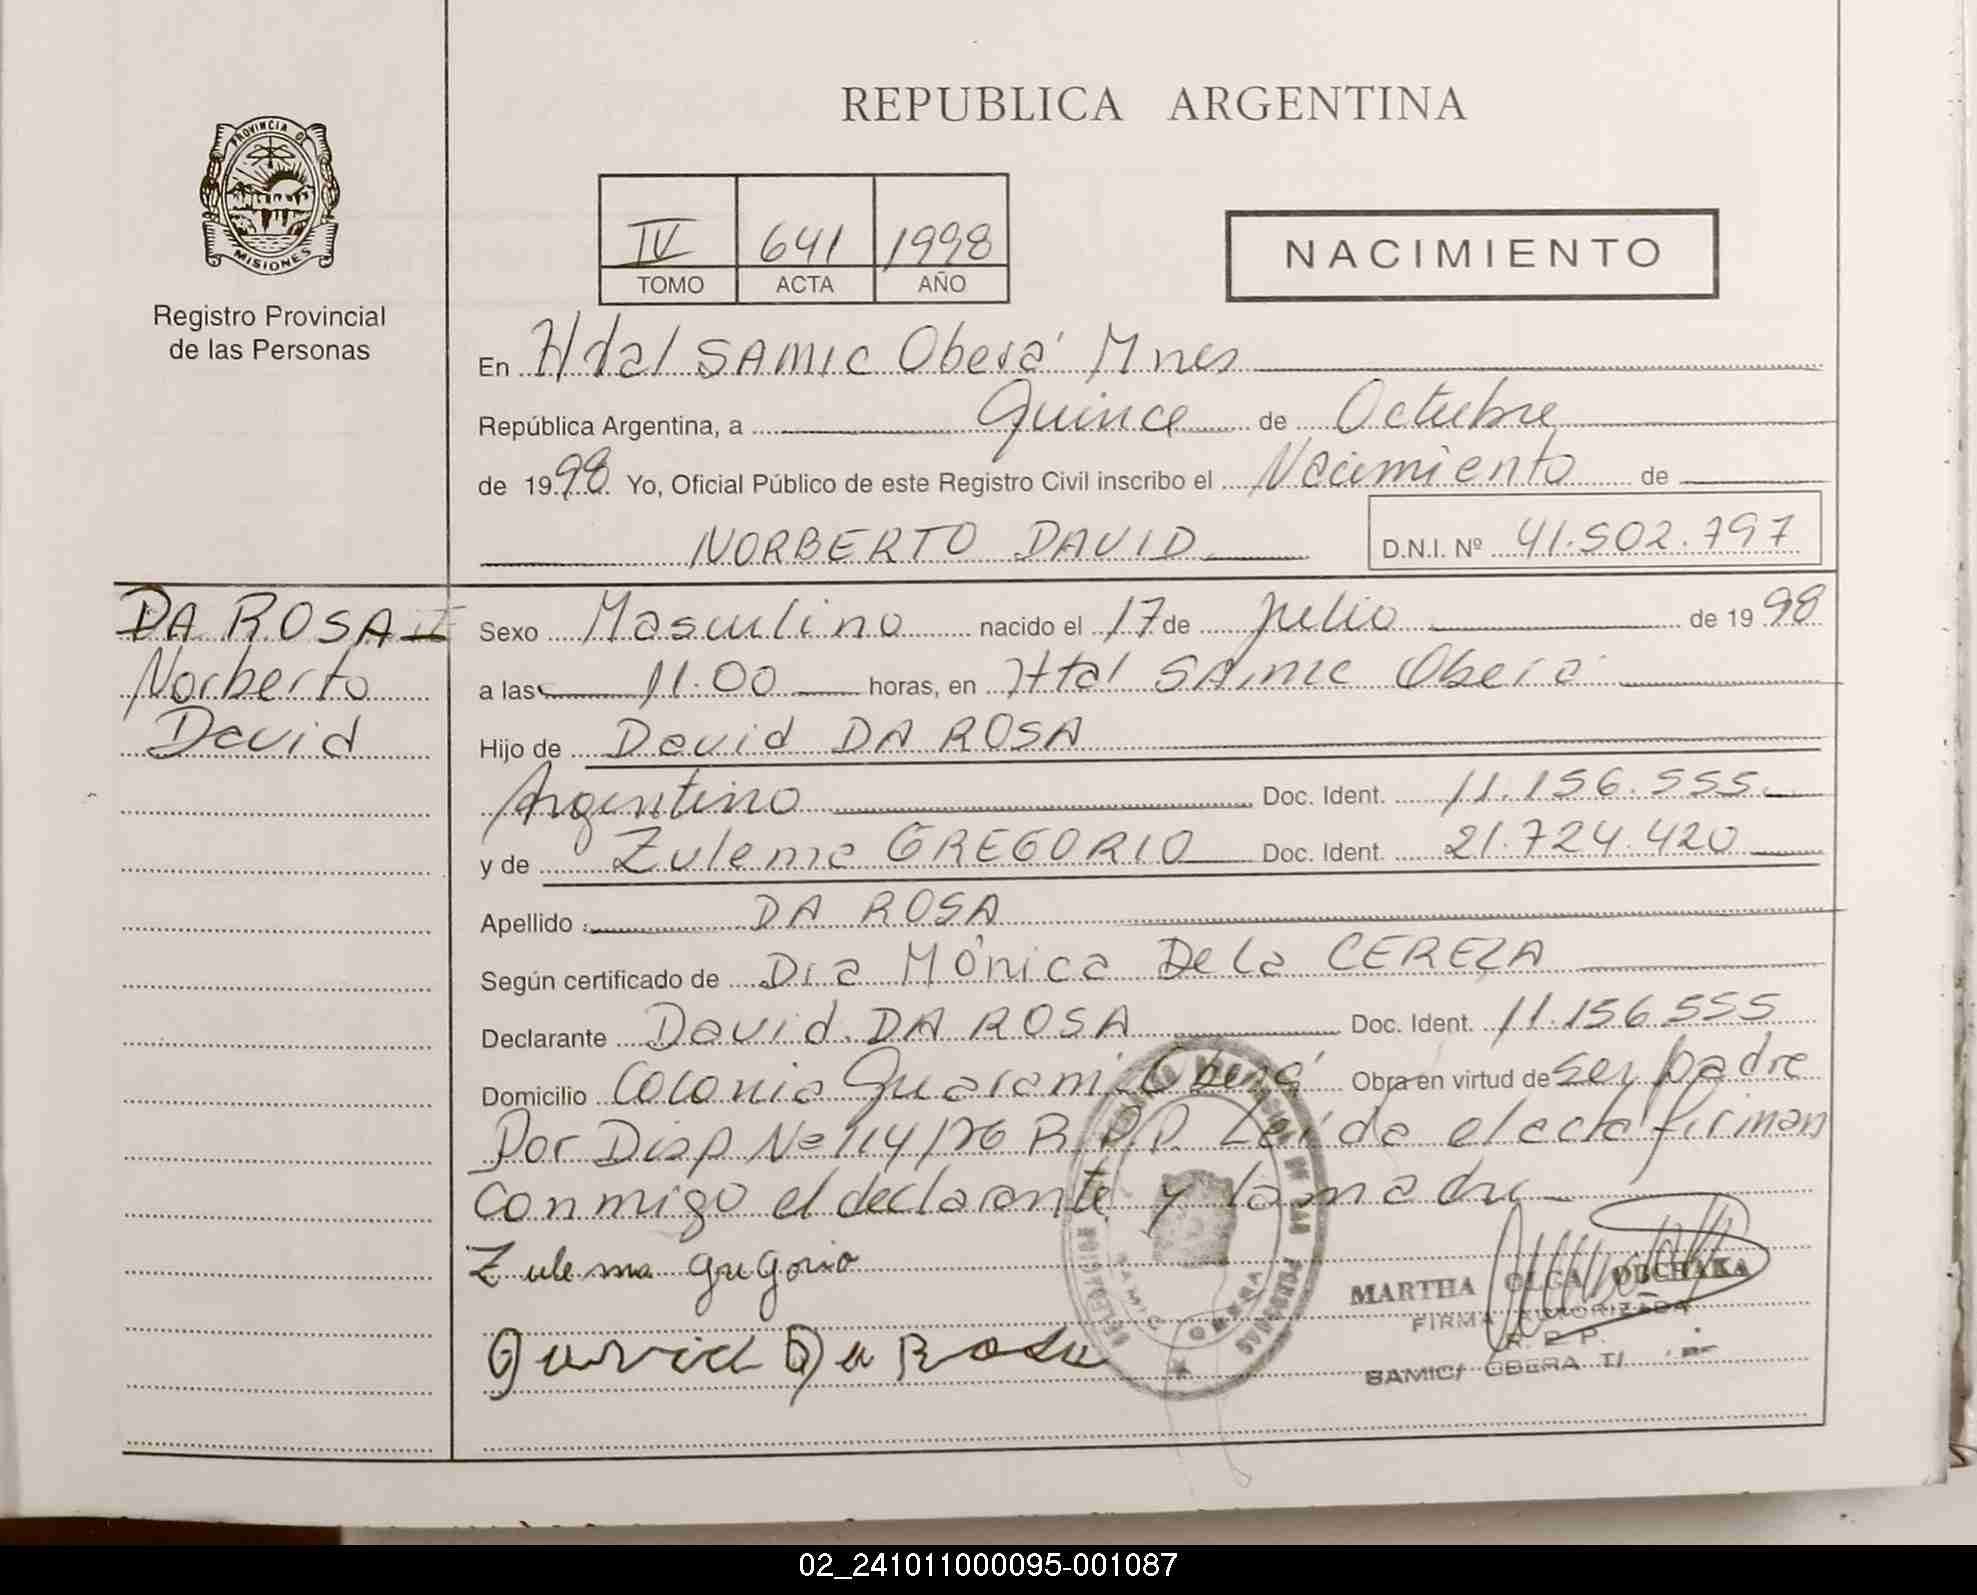 REPUBLICA ARGENTINA
PROVINCIA DE
MISIONES
Registro Provincial
de las Personas
IV 641 1998
TOMO ACTA AÑO
NACIMIENTO
En Htal SAMIC Oberá Mnes
República Argentina, a Quince de Octubre
de 1998 Yo, Oficial Público de este Registro Civil inscribo el Nacimiento de
NORBERTO DAVID D.N.I. Nº 41.502.797
DA ROSA
Norberto
David
Sexo Masculino nacido el 17 de Julio de 1998
a las 11.00 horas, en Htal SAMIC Oberá
Hijo de David DA ROSA
Argentino Doc. Ident. 11.156.555
y de Zulema GREGORIO Doc. Ident. 21.724.420
Apellido : DA ROSA
Según certificado de Dra Mónica De la CEREZA
Declarante David DA ROSA Doc. Ident. 11.156.555
Domicilio Colonia Guarani Oberá Obra en virtud de ser padre
Por Disp Nº 114/76 R.P.P. Leída el acta firman
conmigo el declarante y la madre
Zulema Gregorio
David Da Rosa
MARTHA OLGA OBCHAKA
FIRMA AUTORIZADA
R. P. P.
SAMIC/ OBERA
02_241011000095-001087